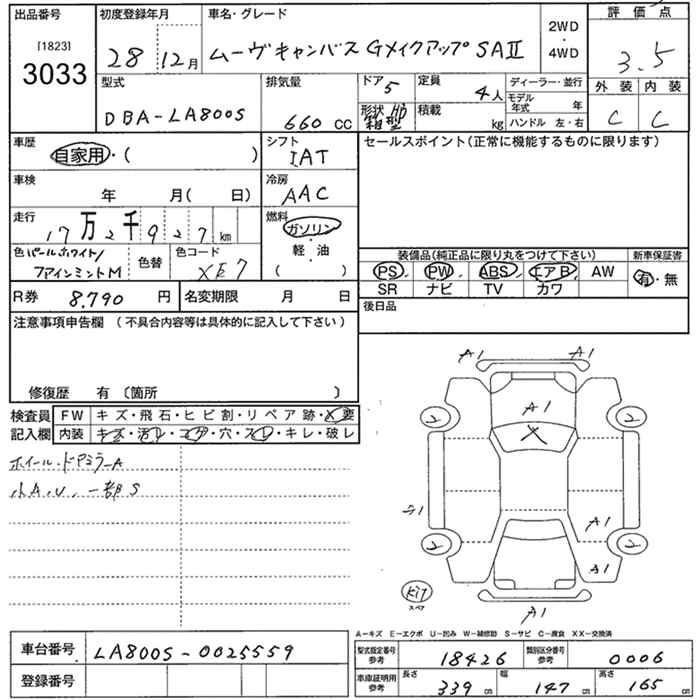 出品番号
[1823]
3033
初度登録年月
28 12月
車名・グレード
ムーヴキャンバス GメイクアップSAⅡ
2WD
・
4WD
評価点
3.5
外装 内装
C C
型式
DBA-LA800S
排気量
660 CC
ドア 5
定員 4人
形状 HB
箱型
積載 kg
ディーラー・並行
モデル年式 年
ハンドル 左・右
車歴
自家用・( )
シフト
IAT
車検
年 月( 日)
冷房
AAC
走行
17万2千927km
燃料
ガソリン
・
軽・油
( )
色 パールホワイト/
ファインミントM
色替
色コード
XE7
R券 8,790 円
名変期限 月 日
セールスポイント(正常に機能するものに限ります)
装備品(純正品に限り丸をつけて下さい)
PS PW ABS エアB AW
SR ナビ TV カワ
新車保証書
有・無
後日品
注意事項申告欄 (不具合内容等は具体的に記入して下さい)
修復歴 有〔箇所 〕
検査員
記入欄
FW キズ・飛石・ヒビ割・リペア跡・X要
内装 キズ・汚レ・コゲ・穴・スレ・キレ・破レ
ホイール・ドアミラーA
小A.U. 一部S
A1 A1
A1
X
2 2
A1
A1
2 2
A1
キリ
スペア
A1
A-キズ E-エクボ U-凹み W-補修跡 S-サビ C-腐食 XX-交換済
車台番号 LA800S-0025559
登録番号
型式指定番号
参考
18426
類別区分番号
参考
0006
車庫証明用
参考
長さ 339 cm
幅 147 cm
高さ 165 cm